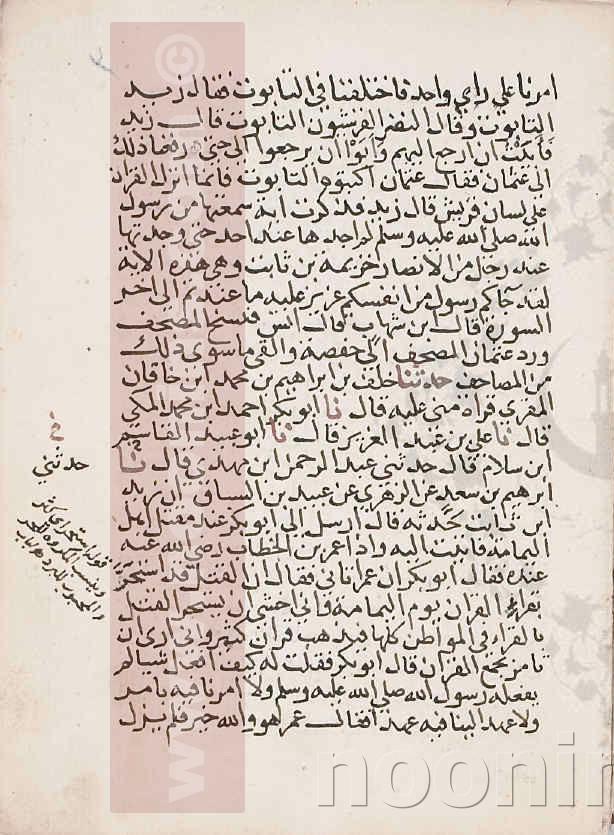 امرنا على راي واحد فاختلفنا في التابوت فقال زيد
التابوت وقال النفر القرشيون التابوت قال زيد
فابيت ان ارجع اليهم وابوا ان يرجعوا الي حتى رفعنا ذلك
الى عثمان فقال عثمان اكتبوه التابوت فانما انزل القران
على لسان قريش قال زيد فذكرت اية سمعتها من رسول
الله صلى الله عليه وسلم لم اجدها عند احد حتى وجدتها
عند رجل من الانصار خزيمة بن ثابت وهي هذه الاية
لقد جاكم رسول من انفسكم عزيز عليه ما عنتم الى اخر
السورة قال بن شهاب قال انس فنسخ المصحف
ورد عثمان المصحف الى حفصة والقى ما سوى ذلك
من المصاحف حدثنا خلف بن ابراهيم بن محمد ابن خاقان
المقري قراة مني عليه قال نا ابو بكر احمد ابن محمد المكي
قال نا علي بن عبد العزيز قال نا ابو عبيد القاسم
ابن سلام قال حدثني عبد الرحمن ابن مهدي قال نا
ابرهيم بن سعد عن الزهري عن عبيد بن السباق ان زيد
ابن ثابت حدثه قال ارسل الي ابو بكر عند مقتل اهل
اليمامة فاتيت اليه واذا عمر بن الخطاب رضي الله عنه
عنده فقال ابو بكر ان عمر اتاني فقال ان القتل قد استحر
بقراء القران يوم اليمامة واني اخشى ان يستحر القتل
بالقراء في المواطن كلها فيذهب قران كثير واني ارى ان
تامر بجمع القران قال ابو بكر فقلت له كيف افعل شيا لم
يفعله رسول الله صلى الله عليه وسلم ولا امرنا فيه بامر
ولا عهد الينا فيه عهدا فقال عمر هو والله خير فلم يزل
حدثني
قوله استحر اي كثر
noonin